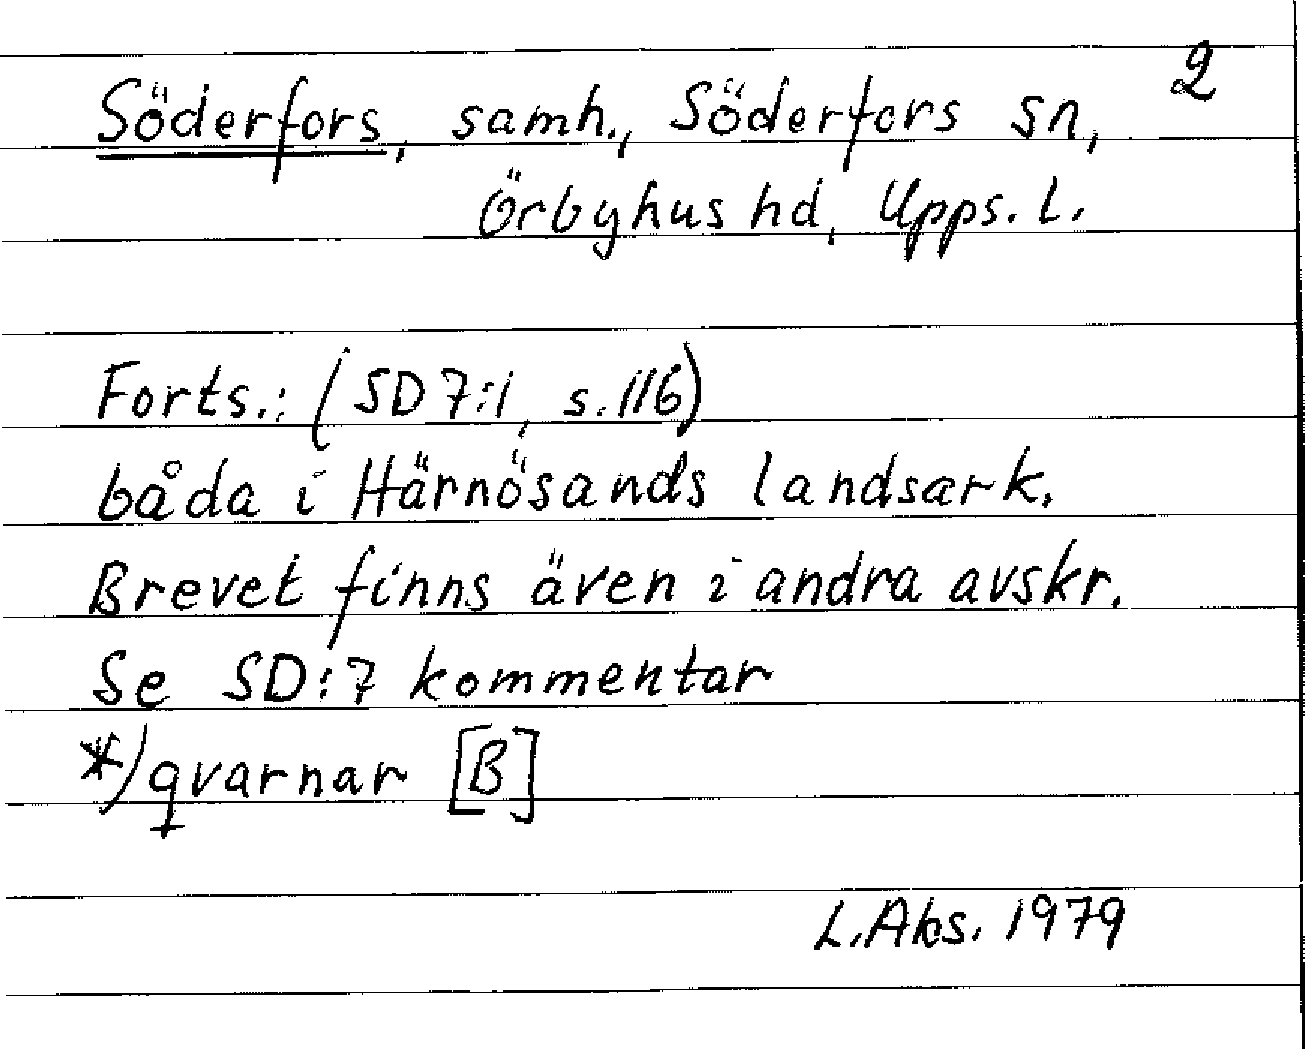 2
Söderfors, samh., Söderfors sn,
Örbyhus hd, Upps. l.
Forts.: (SD 7:1, s. 116)
båda i Härnösands landsark.
Brevet finns även i andra avskr.
Se SD:7 kommentar
*) qvarnar [B]
L. Aks. 1979